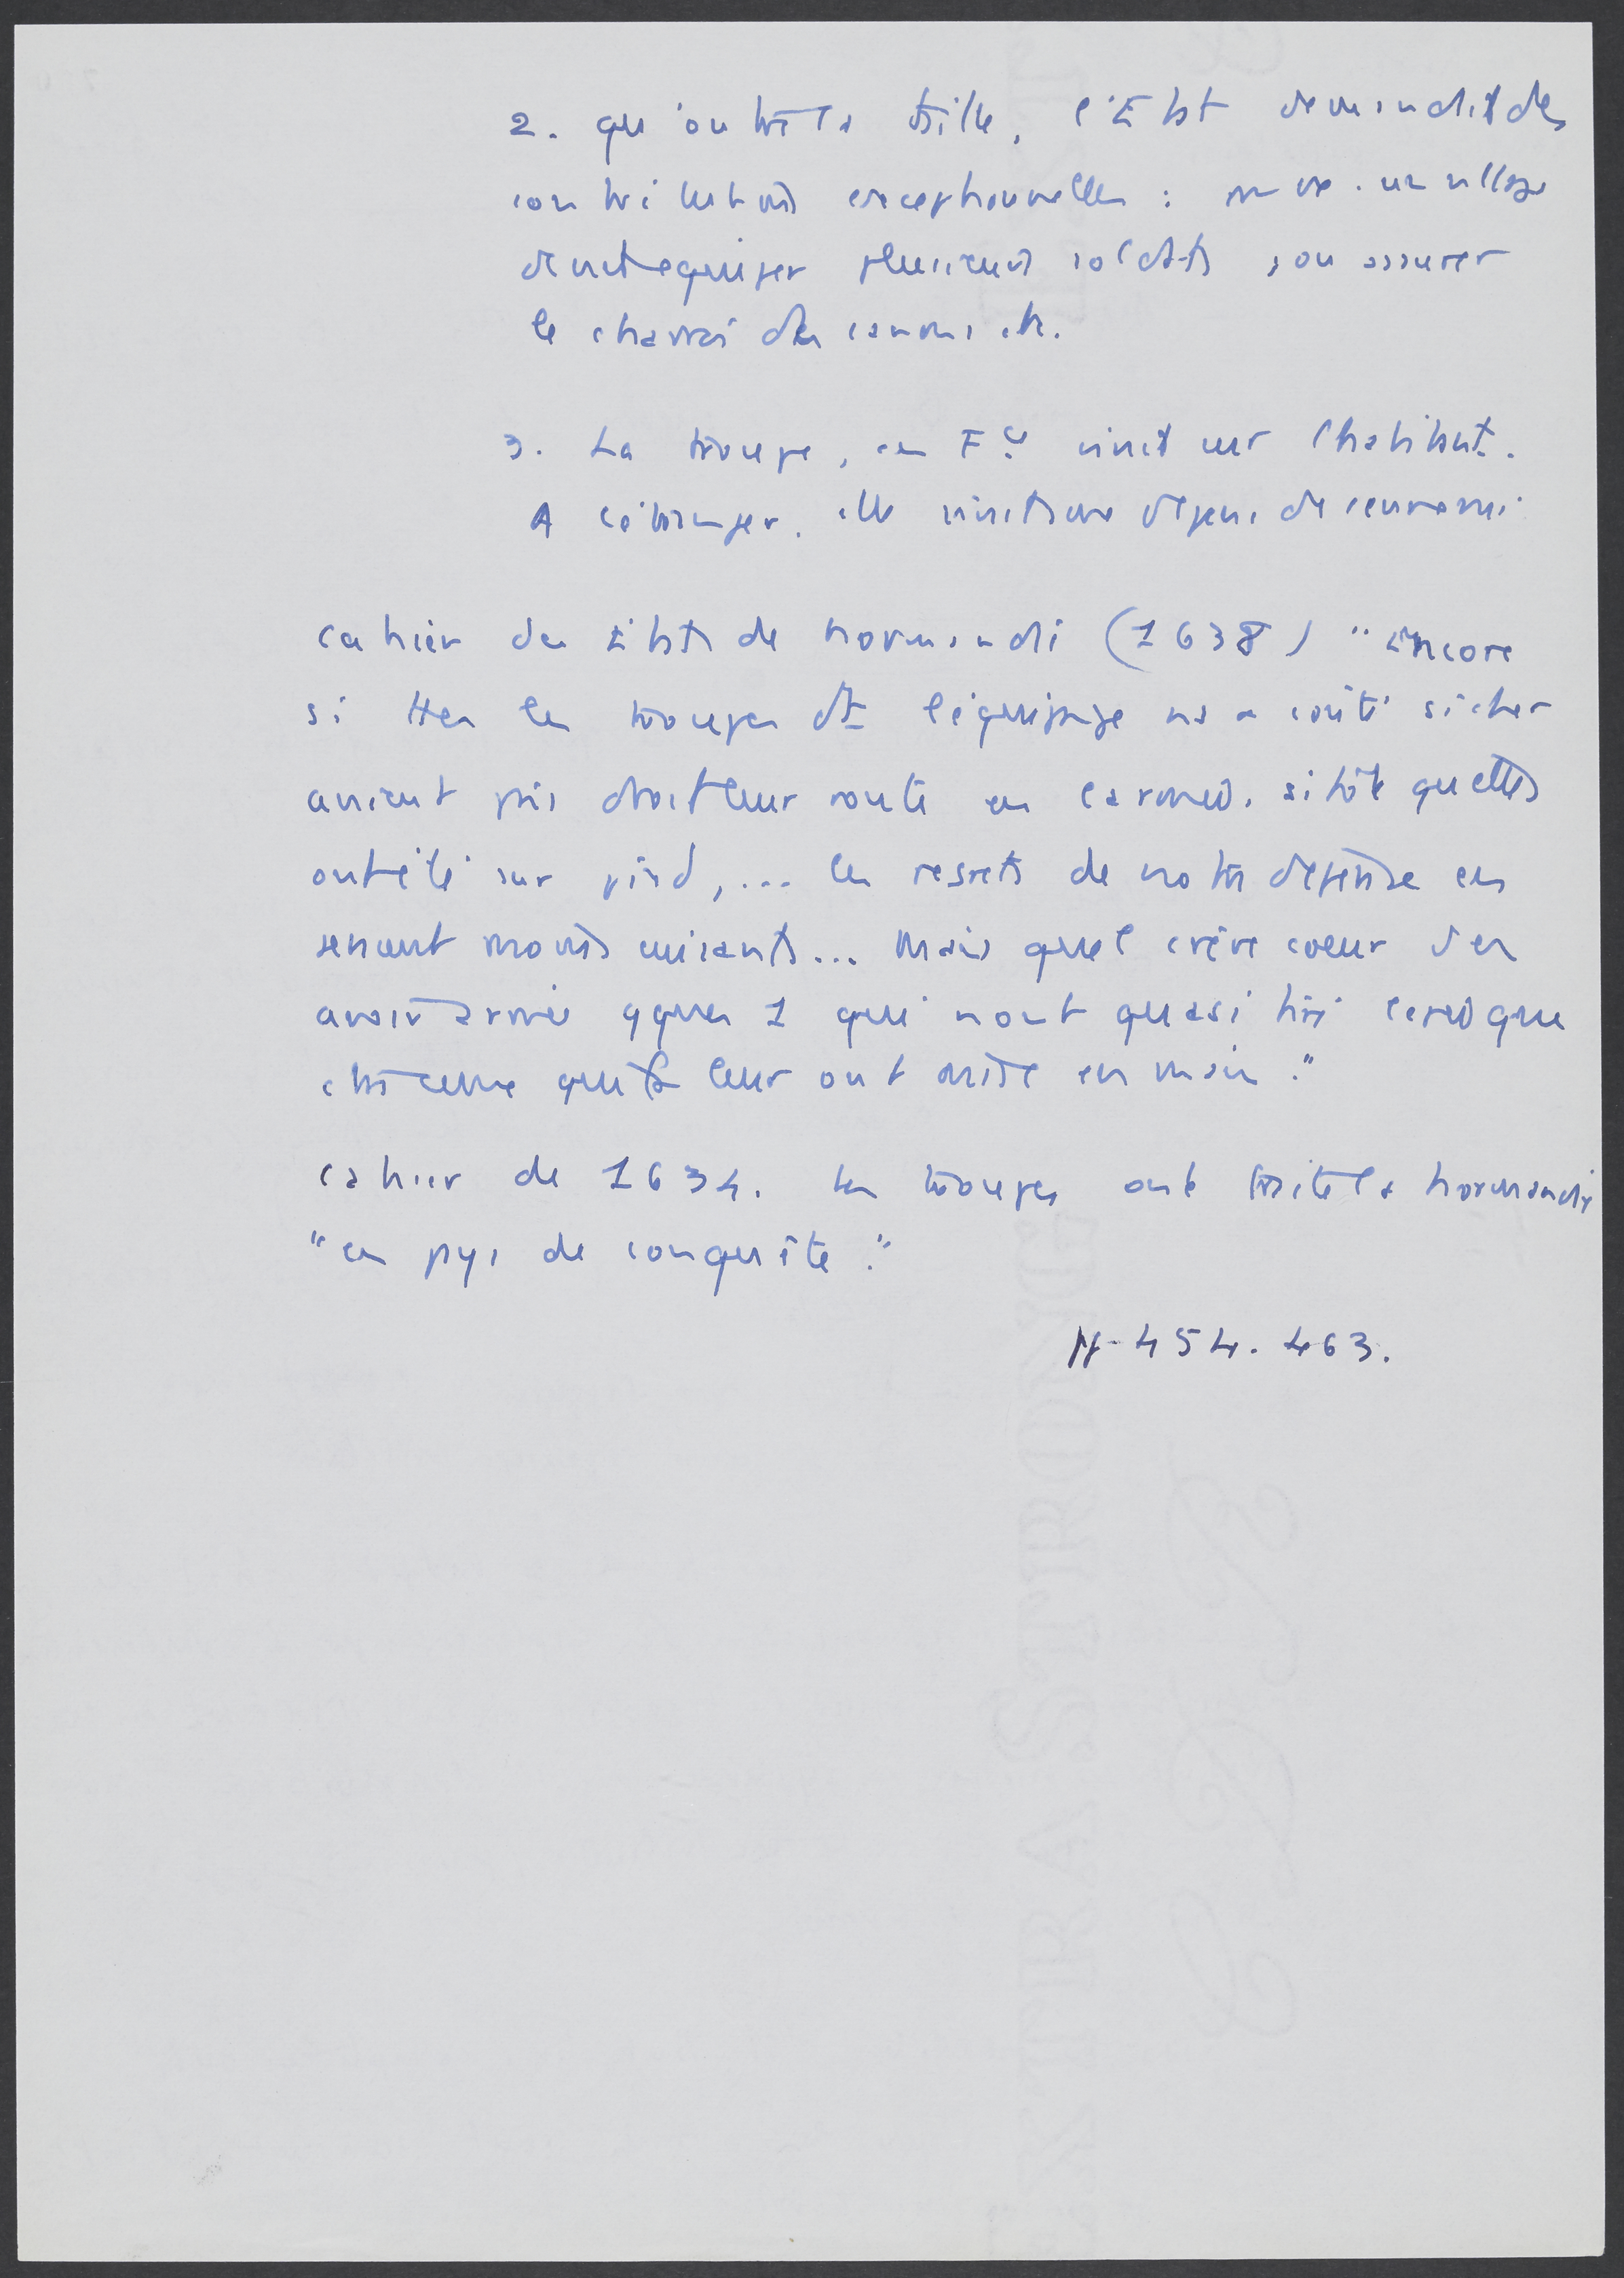 2. qu'outre la taille, l'Etat demandait des
contributions exceptionnelles : un village
devait equiper plusieurs soldats, ou assurer
le charroi des canons etc.
3. La troupe, en Fce vivait sur l'habitant.
A l'étranger. elle vivait aux dépens de l'ennemi
cahier des Etats de Normandie (1638) "Encore
si les troupes dt l'équipage ns a couté si cher
avaient pris droit leur route en campagne, sitôt qu'elles
ont été sur pied, ... les regrets de notre dépense en
seraient moins cuisants... Mais quel crève coeur d'en
avoir armé qques 1 qui n'ont quasi tiré que
contre ceux qui les leur ont mises en main."
cahier de 1634. les troupes ont traité la Normandie
"en pays de conquête."
454. 463.